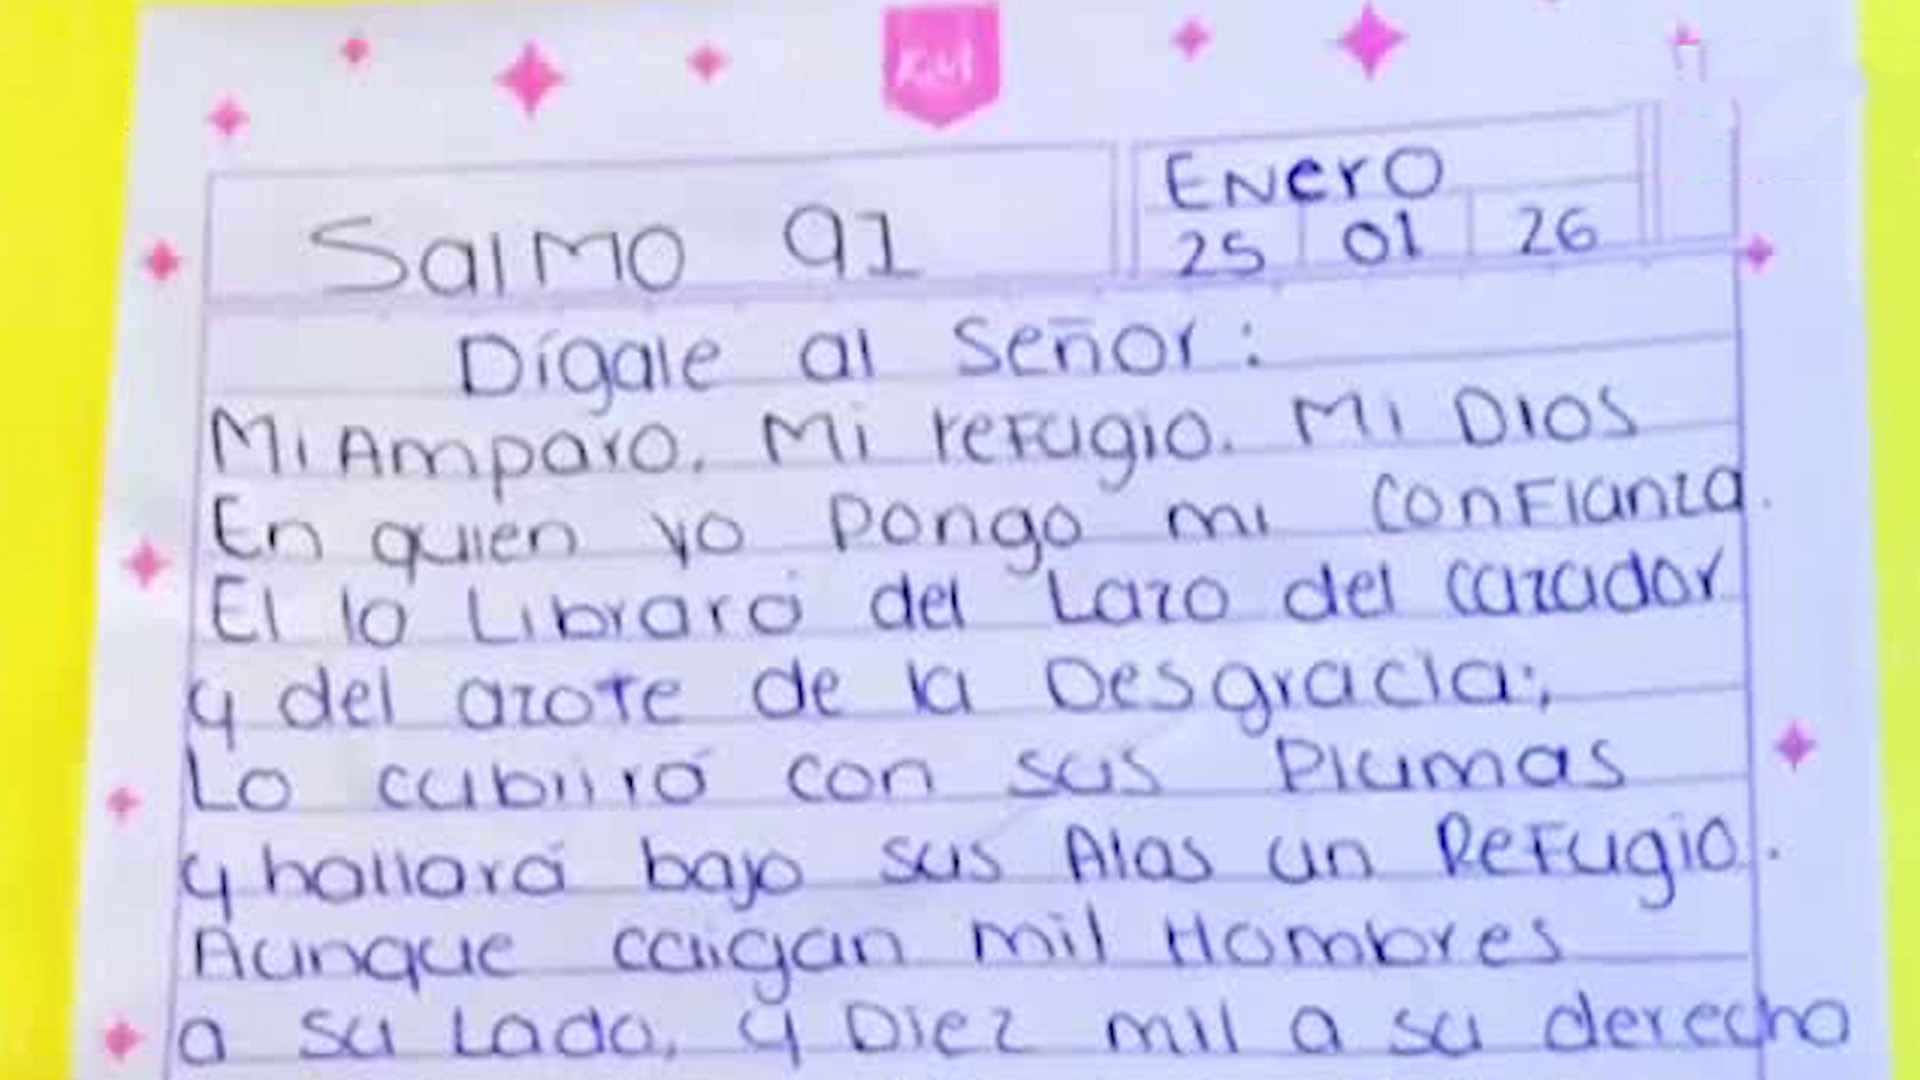 KM
Salmo 91
Enero
25 01 26
Dígale al Señor:
Mi Amparo. Mi refugio. Mi Dios
En quien yo pongo mi confianza.
El lo Librará del Lazo del cazador
y del azote de la Desgracia;
Lo cubiirá con sus Plumas
y hallará bajo sus Alas un Refugio.
Aunque caigan mil Hombres
a su Lado, y Diez mil a su derecha